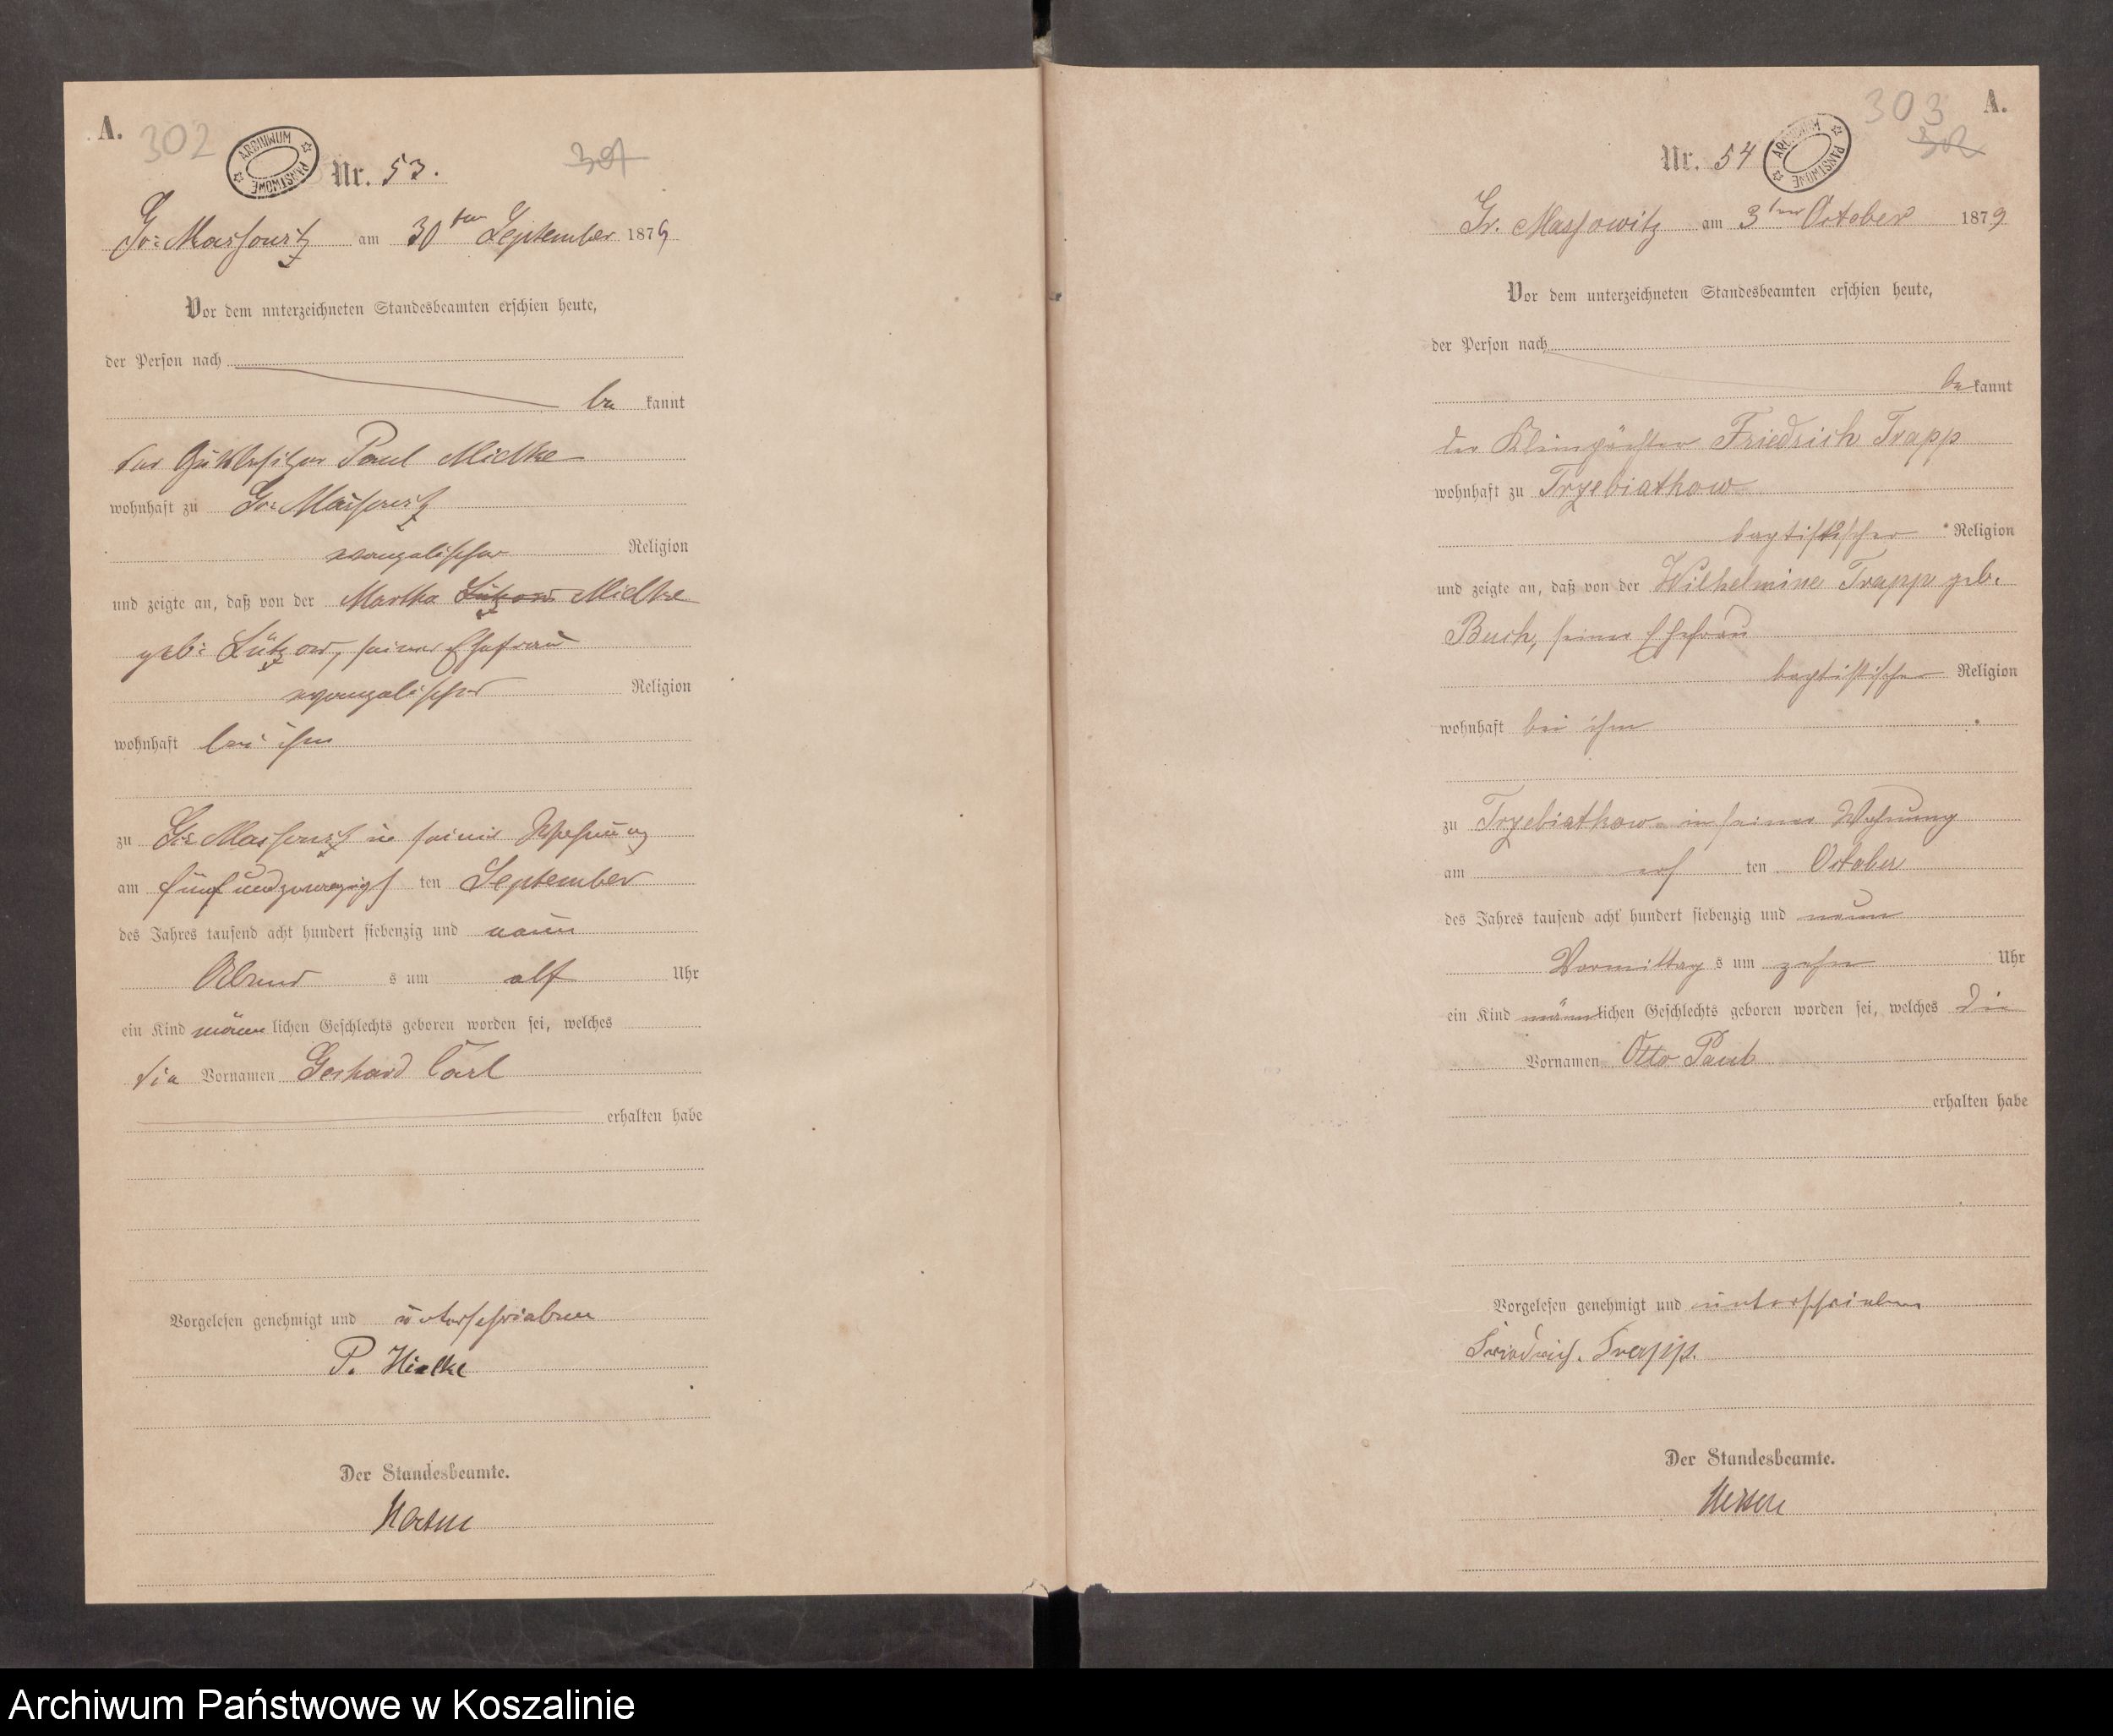 A.
302
ARCHIWUM PAŃSTWOWE
Nr. 53.
301
Gr: Massowitz am 30ten September 1879
Vor dem unterzeichneten Standesbeamten erschien heute,
der Person nach
be kannt
der Gutsbesitzer Paul Mielke
wohnhaft zu Gr: Massowitz
evangelischer Religion
und zeigte an, daß von der Martha Lützow Mielke
geb: Lützow, seiner Ehefrau
evangelischer Religion
wohnhaft bei ihm
zu Gr: Massowitz in seiner Wohnung
am fünf und zwanzigs ten September
des Jahres tausend acht hundert siebenzig und neun
Abend s um elf Uhr
ein Kind männ lichen Geschlechts geboren worden sei, welches
die Vornamen Gerhard Carl
erhalten habe
Vorgelesen genehmigt und unterschrieben
P. Mielke
Der Standesbeamte.
303
A.
302
Nr. 54
ARCHIWUM PAŃSTWOWE
Gr. Massowitz am 3ten October 1879
Vor dem unterzeichneten Standesbeamten erschien heute,
der Person nach
be kannt
der Kleinpächter Friedrich Trapp
wohnhaft zu Trzebiatkow
baptistischer Religion
und zeigte an, daß von der Wilhelmine Trapp geb.
Buch, seiner Ehefrau
baptistischer Religion
wohnhaft bei ihm
zu Trzebiatkow in seiner Wohnung
am ers ten October
des Jahres tausend acht hundert siebenzig und neun
Vormittag s um zehn Uhr
ein Kind männ lichen Geschlechts geboren worden sei, welches die
Vornamen Otto Paul
erhalten habe
Vorgelesen genehmigt und unterschrieben
Friedrich Trapp.
Der Standesbeamte.
Archiwum Państwowe w Koszalinie